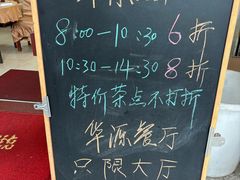 8:00—10:30 6折
10:30-14:30 8折
特价茶点不打折
华源餐厅
只限大厅